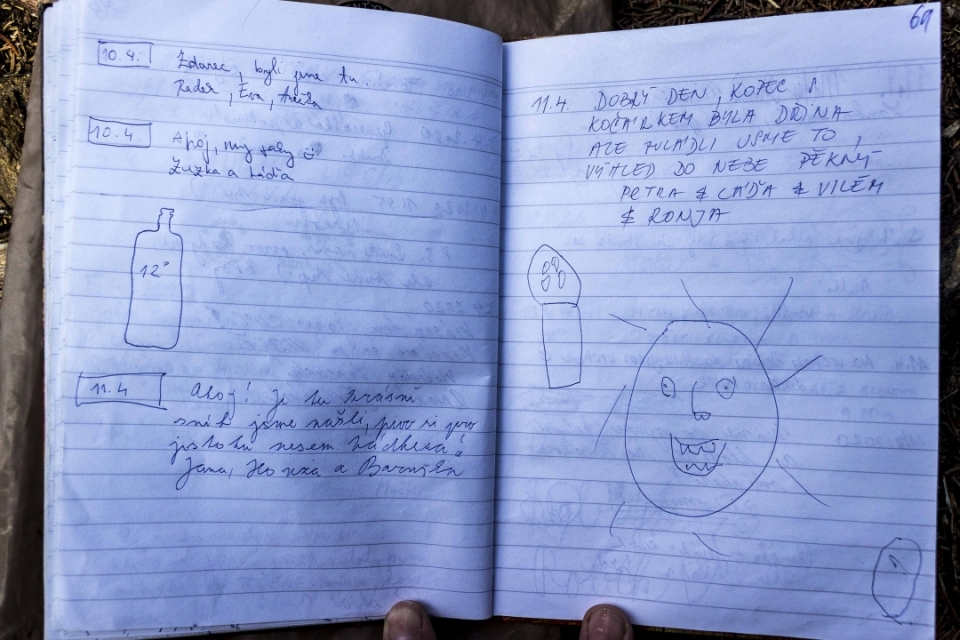 10.4. Zdarec, byli jsme tu...
Radek, Eva, Anička
10.4. Ahoj, my taky
Zuzka a Láďa
12°
11.4 Ahoj! Je tu krásně
sníh jsme našli, pivo si pro
jistotu nesem
Jana, Honza a
69
11.4. DOBRÝ DEN, KOPEC S
KOČÁRKEM BYLA DŘINA
ALE ZVLÁDLI JSME TO,
VÝHLED DO NEBE PĚKNÝ
PETRA & LÁĎA & VILÉM
& RONJA